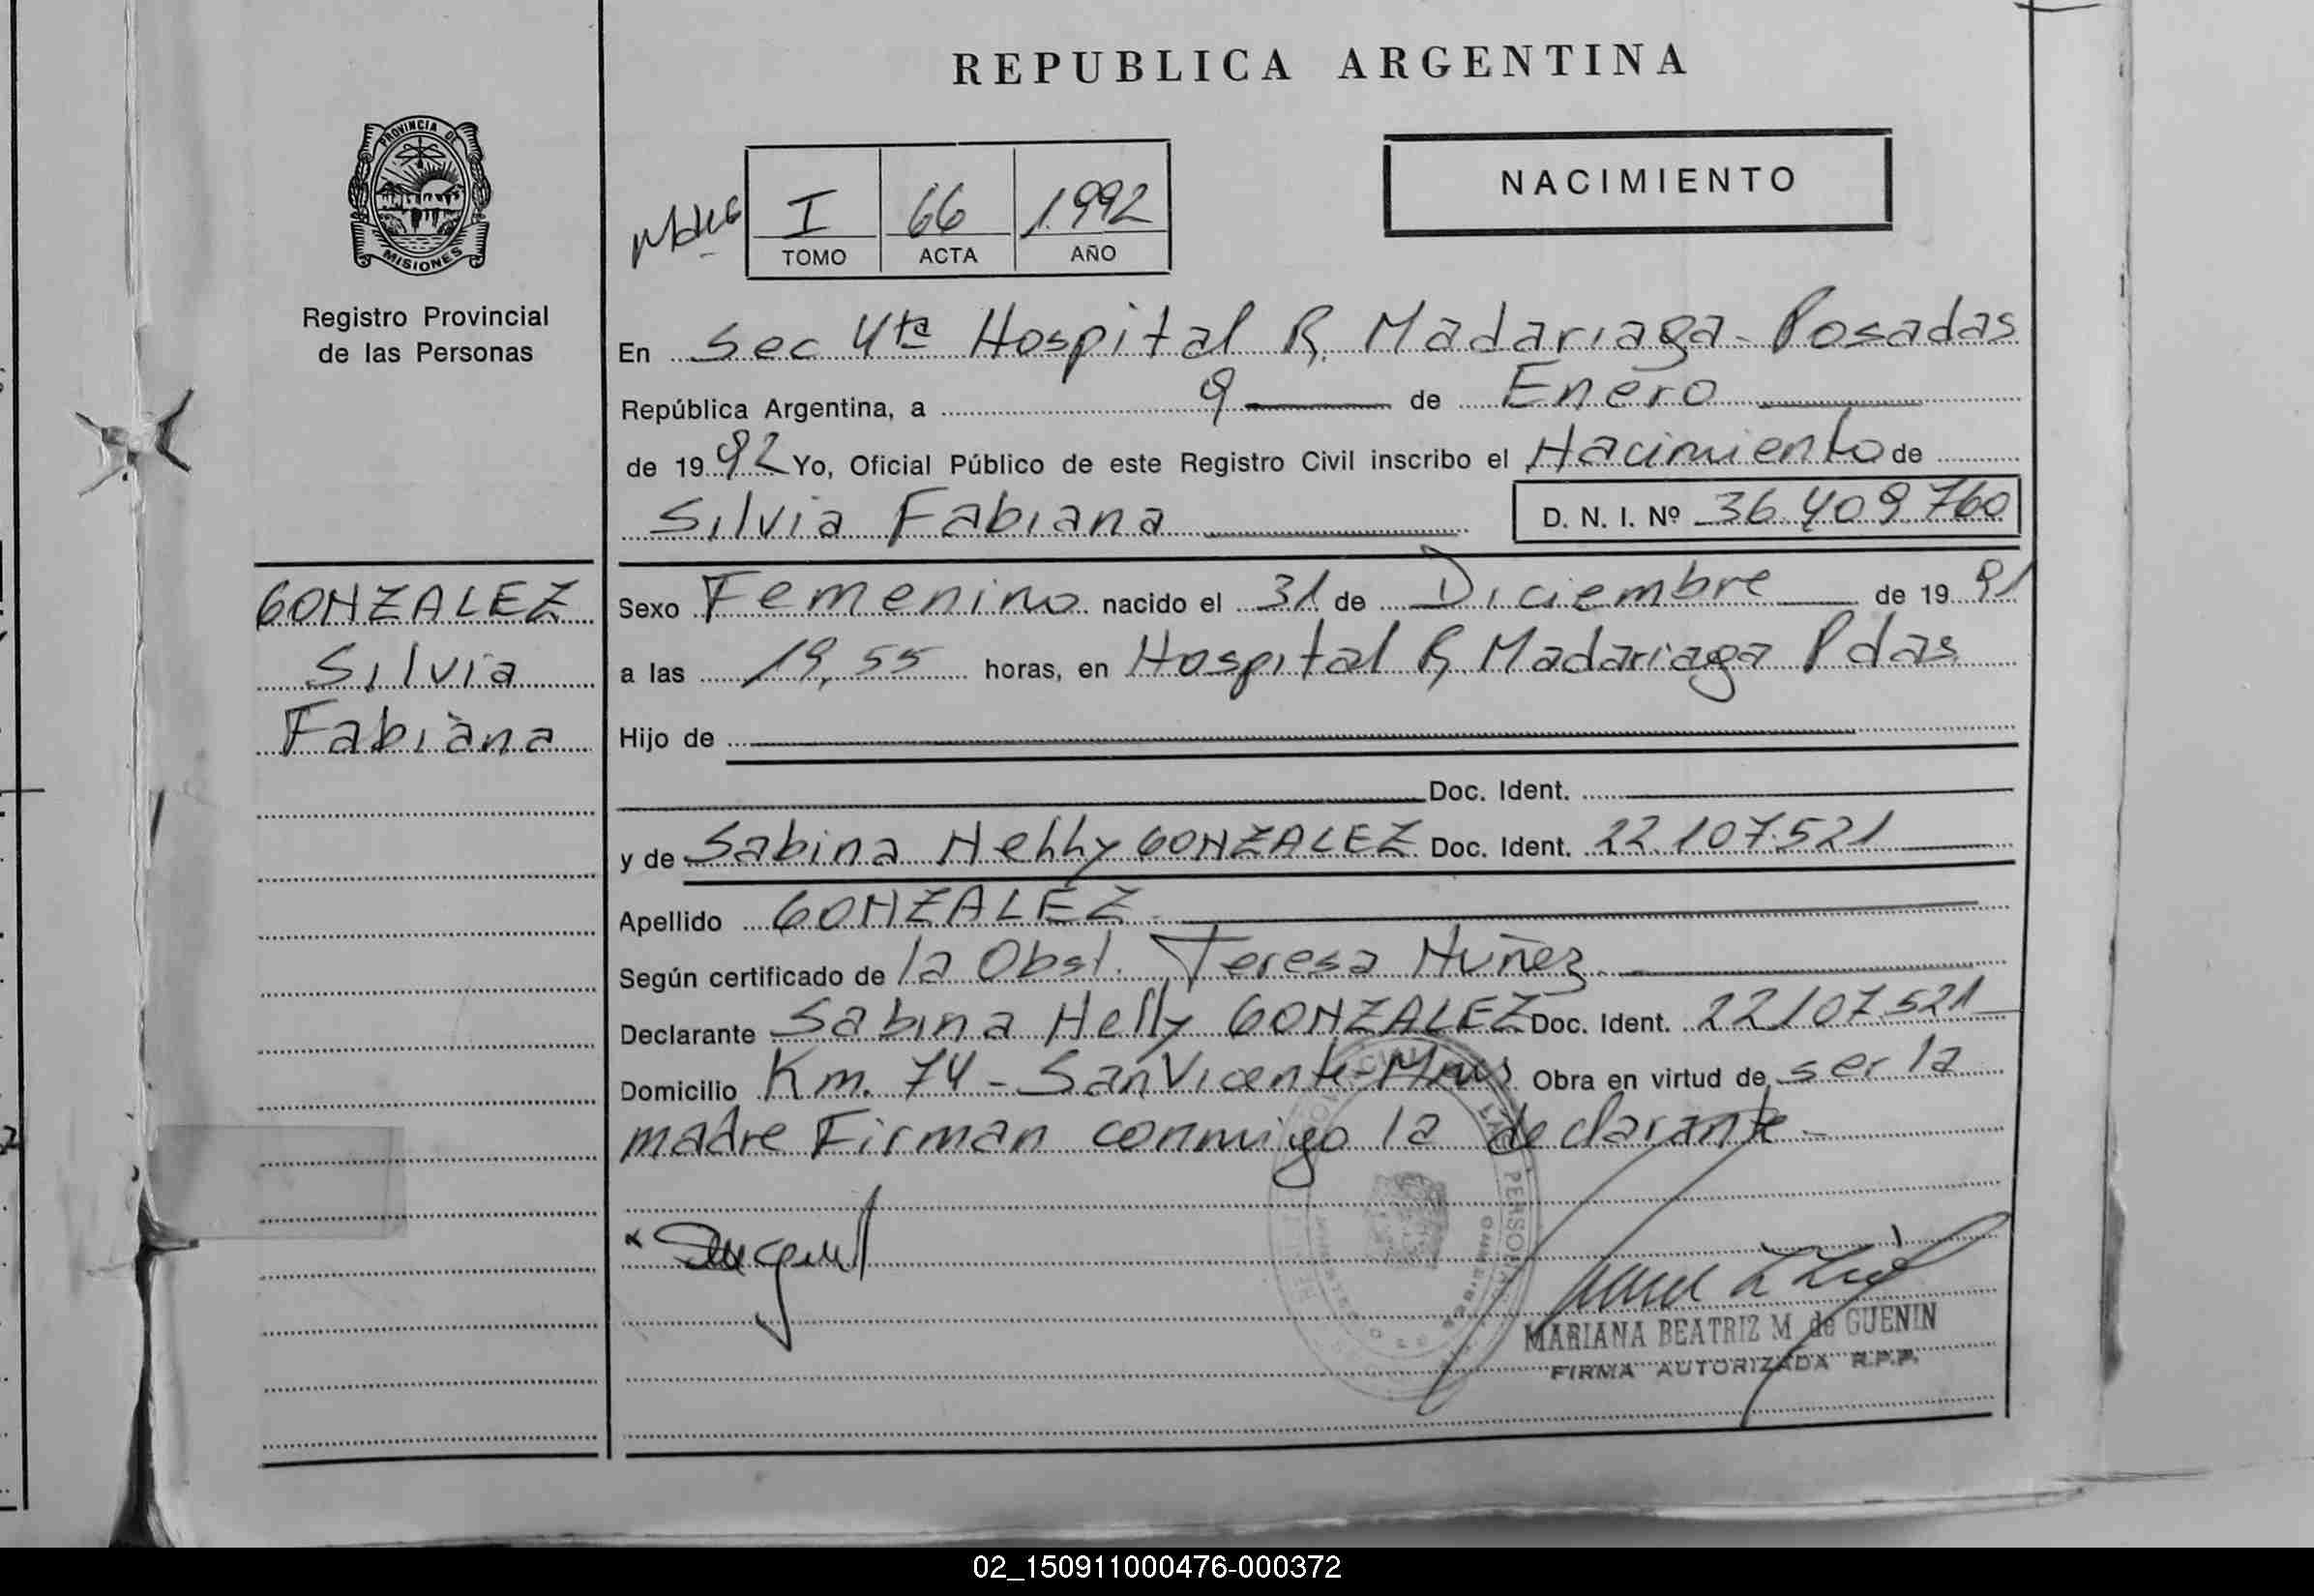 REPUBLICA ARGENTINA
PROVINCIA DE
MISIONES
Registro Provincial
de las Personas
NACIMIENTO
I 66 1992
TOMO ACTA AÑO
En Sec 4ta Hospital R. Madariaga - Posadas
República Argentina, a 9 de Enero
de 1992 Yo, Oficial Público de este Registro Civil inscribo el Nacimiento de
Silvia Fabiana D. N. I. Nº 36.409.760
GONZALEZ
Silvia
Fabiana
Sexo Femenino nacido el 31 de Diciembre de 1991
a las 19,55 horas, en Hospital R. Madariaga Pdas
Hijo de
Doc. Ident.
y de Sabina Nelly GONZALEZ Doc. Ident. 22.107.521
Apellido GONZALEZ
Según certificado de la Obst. Teresa Nuñez
Declarante Sabina Nelly GONZALEZ Doc. Ident. 22107.521
Domicilio Km. 74 - San Vicente - Mnes Obra en virtud de ser la
madre Firman conmigo la declarante
MARIANA BEATRIZ M. de GUENIN
FIRMA AUTORIZADA R.P.P.
02_150911000476-000372